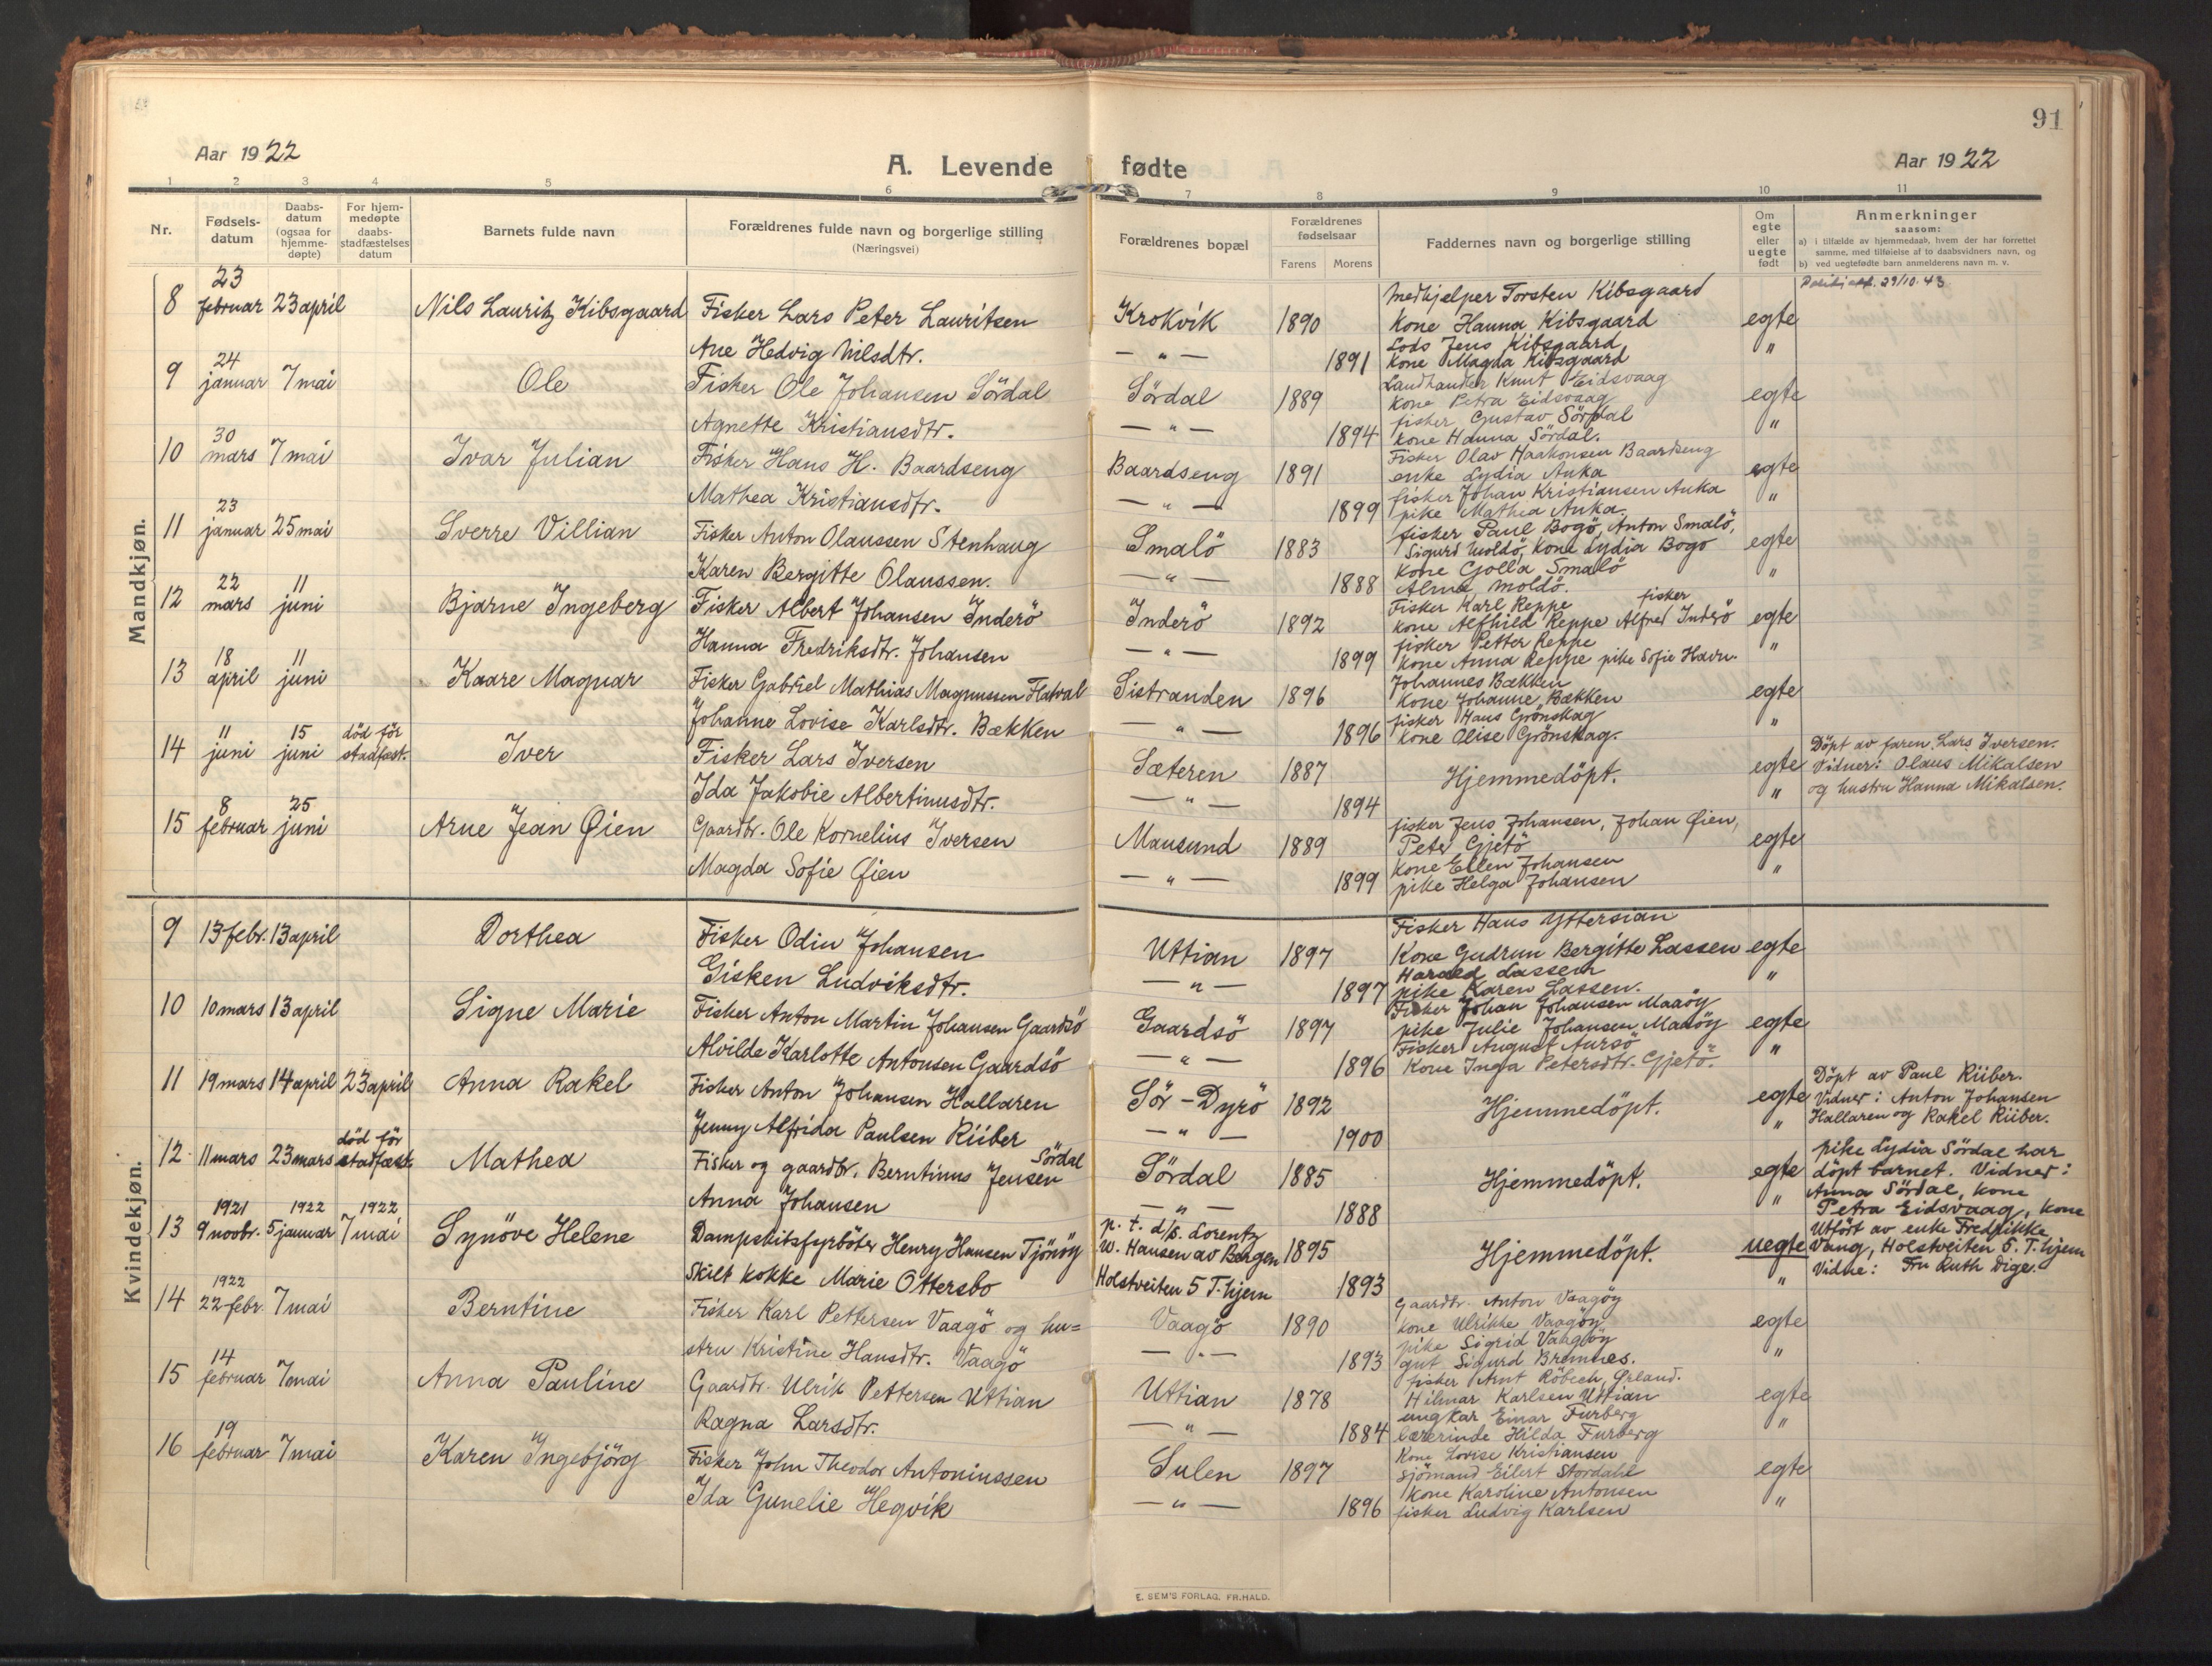 91
Aar 1922
A. Levende fødte
Aar 1922
1 2 3 4 5 6 7 8 9 10 11
Nr.
Fødsels-datum
Daabs-datum (ogsaa for hjemme-døpte)
For hjem-medøpte daabs-stadfæstelses datum
Barnets fulde navn
Forældrenes fulde navn og borgerlige stilling
(Næringsvei)
Forældrenes bopæl
Forældrenes fødselsaar
Farens Morens
Faddernes navn og borgerlige stilling
Om egte eller uegte født
Anmerkninger
saasom:
a) i tilfælde av hjemmedaab, hvem der har forrettet samme, med tilføielse af to daabsvidners navn, og
b) ved uegtefødte barn anmelderens navn m. v.
Mandkjøn.
29/10.43
8 23 februar 23 april Nils Lauritz Kibsgaard Fisker Lars Peter Lauritsen Krokvik 1890 egte
Ane Hedvig Nilsdtr. — " — 1891 "
Medhjelper Torsten Kibsgaard
Kone Hanna Kibsgaard
Lods Jens Kibsgaard
Kone Magda Kibsgaard
9 24 januar 7 mai Ole Fisker Ole Johansen Sördal Sördal 1889 egte
Agnette Kristiansdtr. — " — 1894 "
Landhandler Knut Eidsvaag
Kone Petra Eidsvaag
fisker Gustav Sördal
Kone Hanna Sördal.
10 30 mars 7 mai Ivar Julian Fisker Hans H. Baardseng Baardseng 1891 egte
Mathea Kristiansdtr. — " — 1899 "
Fisker Olav Haakonsen Baardseng
enke Lydia Auka
fisker Johan Kristiansen Auka
pike Mathea Auka.
11 23 januar 25 mai Sverre Villian Fisker Anton Olaussen Stenhaug Smalö 1883 egte
Karen Bergitte Olaussen. — " — 1888 "
fisker Paul Bogö, Anton Smalö,
Sigurd Moldö, Kone Lydia Bogö
Kone Golla Smalö
Alma Moldö.
12 22 mars 11 juni Bjarne Ingeberg Fisker Albert Johansen Inderö Inderö 1892 egte
Hanna Fredriksdtr. Johansen — " — 1899 "
Fisker Karl Reppe fisker
Kone Alfhild Reppe Alfred Inderö
fisker Petter Reppe
Kone Anna Reppe pike Sofie Havn.
13 18 april 11 juni Kaare Magnar Fisker Gabriel Mathias Magnussen Flatval Sistranden 1896 egte
Johanne Lovise Karlsdtr. Bækken — " — 1896 "
Johannes Bækken
Kone Johanne Bækken
fisker Hans Grönskag
Kone Olise Grönskag.
14 11 juni 15 juni död för stadfæst. Iver Fisker Lars Iversen Sæteren 1887 Hjemmedöpt. egte
Ida Jakobie Albertinusdtr. — " — 1894 "
Döpt av faren Lars Iversen.
Vidner: Olaus Mikalsen
og hustru Hanna Mikalsen.
15 8 februar 25 juni Arne Jean Øien Gaardbr. Ole Kornelius Iversen Mausund 1889 egte
Magda Sofie Øien — " — 1899 "
fisker Jens Johansen, Johan Øien,
Peter Gjetö
Kone Ellen Johansen
pike Helga Johansen
Kvindekjøn.
9 13 febr. 13 april Dorthea Fisker Odin Johansen Uttian 1897 egte
Gisken Ludviksdtr. — " — 1897 "
Fisker Hans Yttersian
Kone Gudrun Bergitte Lassen
Harald Lassen
pike Karen Lassen.
10 10 mars 13 april Signe Marie Fisker Anton Martin Johansen Gaardsö Gaardsö 1897 egte
Alvilde Karlotte Antonsen Gaardsö — " — 1896 "
Fisker Johan Johansen Maaöy
pike Julie Johansen Maaöy
Fisker August Aursö
Kone Inga Petersdtr. Gjetö.
11 19 mars 14 april 23 april Anna Rakel Fisker Anton Johansen Hallaren Sör-Dyrö 1892 Hjemmedöpt. egte
Jenny Alfrida Paulsen Riiber — " — 1900 "
Döpt av Paul Riiber.
Vidner: Anton Johansen
Hallaren og Rakel Riiber.
12 11 mars 23 mars död för stadfæst. Mathea Fisker og gaardbr. Berntinus Jensen Sördal Sördal 1885 Hjemmedöpt. egte
Anna Johansen — " — 1888 "
pike Lydia Sördal har
döpt barnet. Vidner:
Anna Sördal, kone
Petra Eidsvaag, kone
13 1921 9 novbr. 1922 5 januar 1922 7 mai Synöve Helene Dampskibsfyrböter Henry Hansen Tjönöy p. t. d/s. Lorentz W. Hansen av Bergen 1895 Hjemmedöpt. uegte
Skilt kokke Marie Ottersbo Holstveiten 5 T.hjem 1893 "
Utfört av enke Fredrikke
Vang, Holstveiten 5. T.hjem
Vidne: Fru Ruth Dige.
14 1922 22 febr. 7 mai Berntine Fisker Karl Pettersen Vaagö og hu= Vaagö 1890 egte
stru Kristine Hansdtr. Vaagö — " — 1893 "
Gaardbr. Anton Vaagöy
Kone Ulrikke Vaagöy
pike Sigrid Vaagöy
gut Sigurd Bremnes.
15 14 februar 7 mai Anna Pauline Gaardbr. Ulrik Pettersen Uttian Uttian 1878 egte
Ragna Larsdtr. — " — 1884 "
fisker Arnt Röbech, Ørland.
Hilmar Karlsen Uttian
ungkar Einar Furberg
lærerinde Hilda Furberg
16 19 februar 7 mai Karen Ingebjörg Fisker John Theodor Antoniussen Sulen 1897 egte
Ida Gunelie Hegvik — " — 1896 "
Kone Lovise Kristiansen
Sjömand Eilert Stordahl
Kone Karoline Antonsen
fisker Ludvig Karlsen
E. SEM'S FORLAG, FR.HALD.